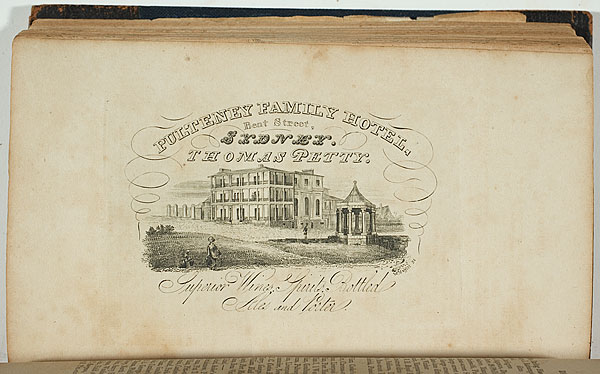 PULTENEY FAMILY HOTEL,
Bent Street,
SYDNEY.
THOMAS PETTY.
Superior Wines, Spirits, Bottled
Ales and Porter.